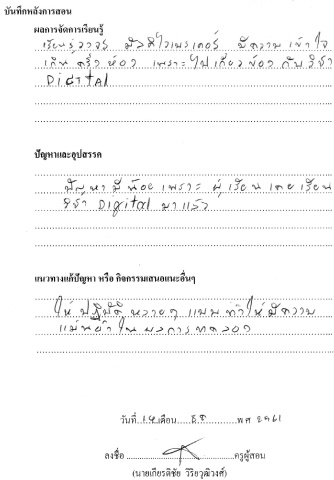 บันทึกหลังการสอน
ผลการจัดการเรียนรู้
เรียนรู้วงจร มัลติไวเบรเตอร์ มีความเข้าใจ
เกินครึ่งห้อง เพราะไปเกี่ยวข้องกับวิชา
Digital
ปัญหาและอุปสรรค
ปัญหามีน้อยเพราะ ผู้เรียนเคยเรียน
วิชา Digital มาแล้ว
แนวทางแก้ปัญหา หรือ กิจกรรมเสนอแนะอื่นๆ
ให้ปฏิบัติหลายๆ แบบ ทำให้มีความ
แม่นยำในผลการทดลอง
วันที่ 14 เดือน ธค พศ 2561
ลงชื่อ ครูผู้สอน
(นายเกียรติชัย วิริยวุฒิวงศ์)